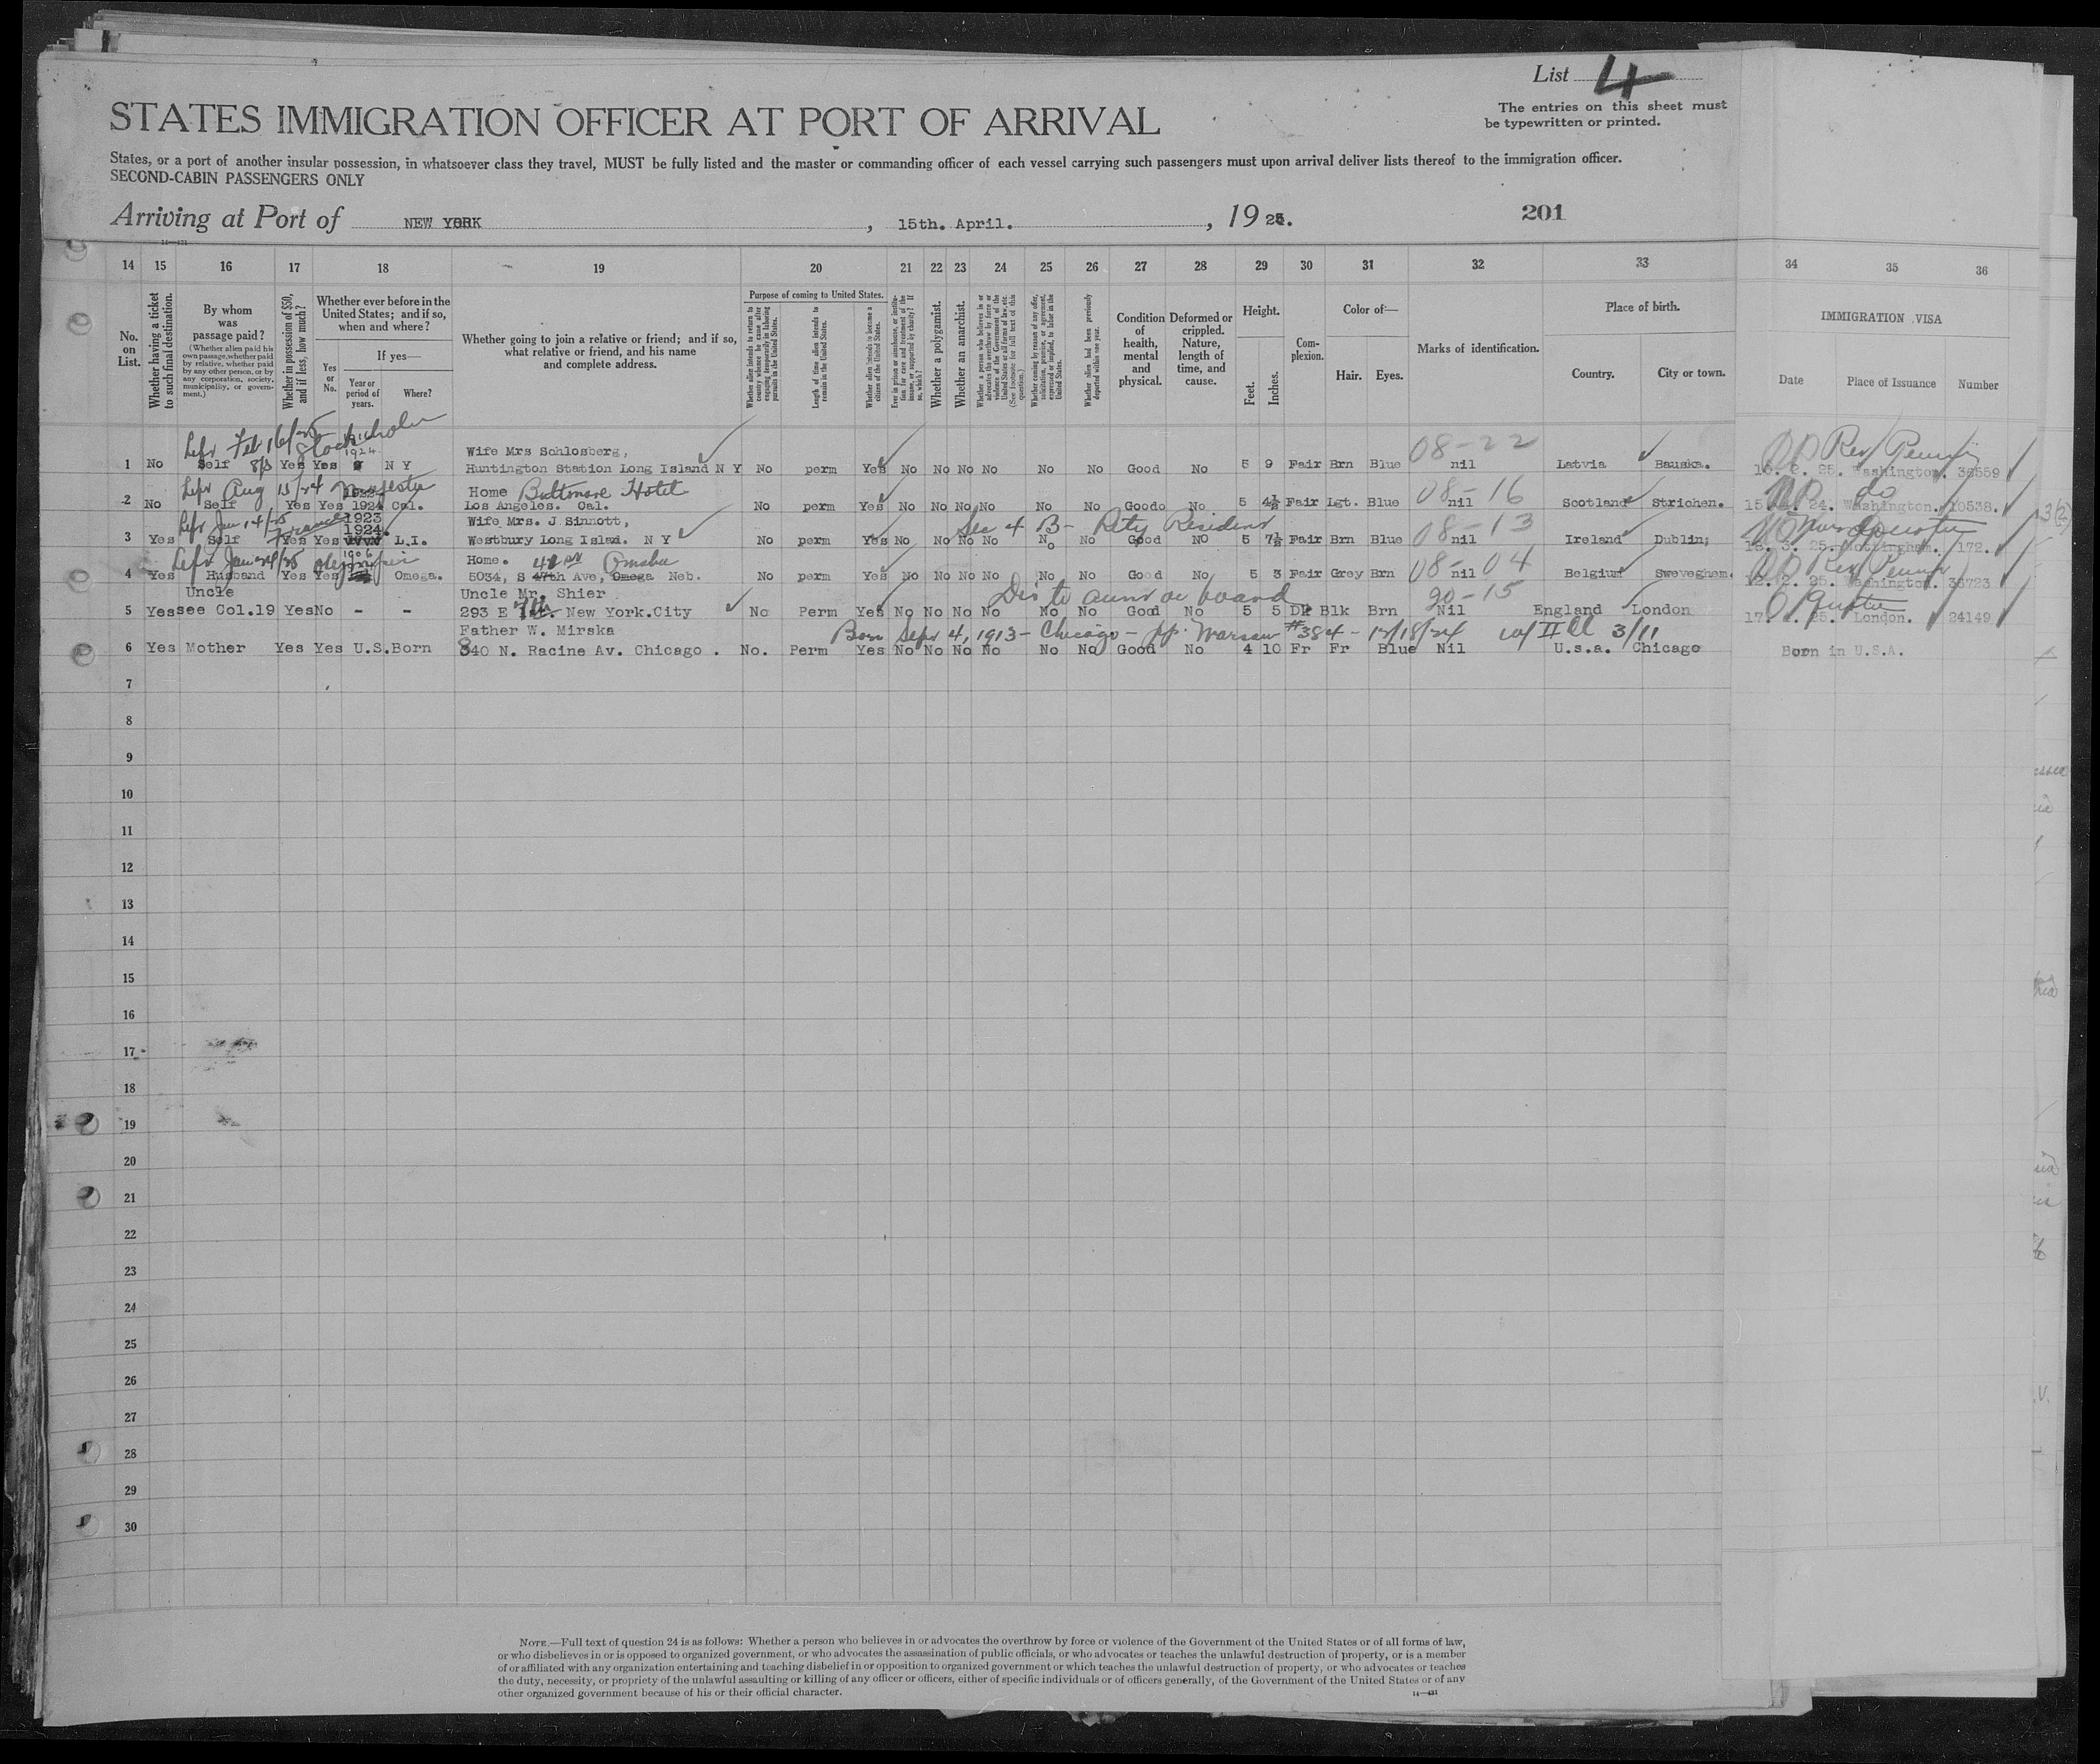 List 4
The entries on this sheet must
be typewritten or printed.
STATES IMMIGRATION OFFICER AT PORT OF ARRIVAL
States, or a port of another insular possession, in whatsoever class they travel, MUST be fully listed and the master or commanding officer of each vessel carrying such passengers must upon arrival deliver lists thereof to the immigration officer.
SECOND-CABIN PASSENGERS ONLY
Arriving at Port of NEW YORK, 15th. April., 1925. 201
14—431
14 15 16 17 18 19 20 21 22 23 24 25 26 27 28 29 30 31 32 33 34 35 36
No. on List.
Whether having a ticket to such final destination.
By whom was passage paid?
(Whether alien paid his own passage, whether paid by relative, whether paid by any other person, or by any corporation, society, municipality, or government.)
Whether in possession of $50, and if less, how much?
Whether ever before in the United States; and if so, when and where?
Yes or No.
If yes—
Year or period of years.
Where?
Whether going to join a relative or friend; and if so, what relative or friend, and his name and complete address.
Purpose of coming to United States.
Whether alien intends to return to country whence he came after engaging temporarily in laboring pursuits in the United States.
Length of time alien intends to remain in the United States.
Whether alien intends to become a citizen of the United States.
Ever in prison or almshouse, or institution for care and treatment of the insane, or supported by charity? If so, which?
Whether a polygamist.
Whether an anarchist.
Whether a person who believes in or advocates the overthrow by force or violence of the Government of the United States or all forms of law, etc. (See footnote for full text of this question.)
Whether coming by reason of any offer, solicitation, promise, or agreement, expressed or implied, to labor in the United States.
Whether alien had been previously deported within one year.
Condition of health, mental and physical.
Deformed or crippled. Nature, length of time, and cause.
Height.
Feet.
Inches.
Complexion.
Color of—
Hair. Eyes.
Marks of identification.
Place of birth.
Country. City or town.
IMMIGRATION VISA
Date Place of Issuance Number
Left Feb 16/25 Stockholm 1924 Wife Mrs Schlosberg, 08-22
1 No Self Yes Yes N Y Huntington Station Long Island N Y No perm Yes No No No No No No Good No 5 9 Fair Brn Blue nil Latvia Bauska. Washington. 36559
Left Aug 15/24 Majestic Home Biltmore Hotel 08-16 do
2 No Self Yes Yes 1924 Cal. Los Angeles. Cal. No perm Yes No No No No No No Good No 5 4½ Fair Lgt. Blue nil Scotland Strichen. Washington. 10538.
Left Jan 14/25 France 1923 1924. Wife Mrs. J Sinnott, Sec 4 B- Rety Resident 08-13
3 Yes Self Yes Yes L.I. Westbury Long Islnd. N Y No perm Yes No No No No No No Good No 5 7½ Fair Brn Blue nil Ireland Dublin; 172.
Left Jan 24/25 Olympic 1906 Home. 42nd Omaha 08-04
4 Yes Husband Yes Yes Omega. 5034, S 47th Ave, Omega Neb. No perm Yes No No No No No No Good No 5 3 Fair Grey Brn nil Belgium Sweveghem. Washington. 36723
Uncle Uncle Mr. Shier Dis to aunt on board 20-15
5 Yes see Col.19 Yes No - - 293 E 7th New York.City No Perm Yes No No No No No No Good No 5 5 Dk Blk Brn Nil England London London. 24149
Father W. Mirska Born Sept 4, 1913 - Chicago - pp. Warsaw #384 - 12/18/24 3/11
6 Yes Mother Yes Yes U.S.Born 840 N. Racine Av. Chicago. No. Perm Yes No No No No No No Good No 4 10 Fr Fr Blue Nil U.s.a. Chicago Born in U.S.A.
7
8
9
10
11
12
13
14
15
16
17
18
19
20
21
22
23
24
25
26
27
28
29
30
NOTE.—Full text of question 24 is as follows: Whether a person who believes in or advocates the overthrow by force or violence of the Government of the United States or of all forms of law,
or who disbelieves in or is opposed to organized government, or who advocates the assassination of public officials, or who advocates or teaches the unlawful destruction of property, or is a member
of or affiliated with any organization entertaining and teaching disbelief in or opposition to organized government or which teaches the unlawful destruction of property, or who advocates or teaches
the duty, necessity, or propriety of the unlawful assaulting or killing of any officer or officers, either of specific individuals or of officers generally, of the Government of the United States or of any
other organized government because of his or their official character.
14—431